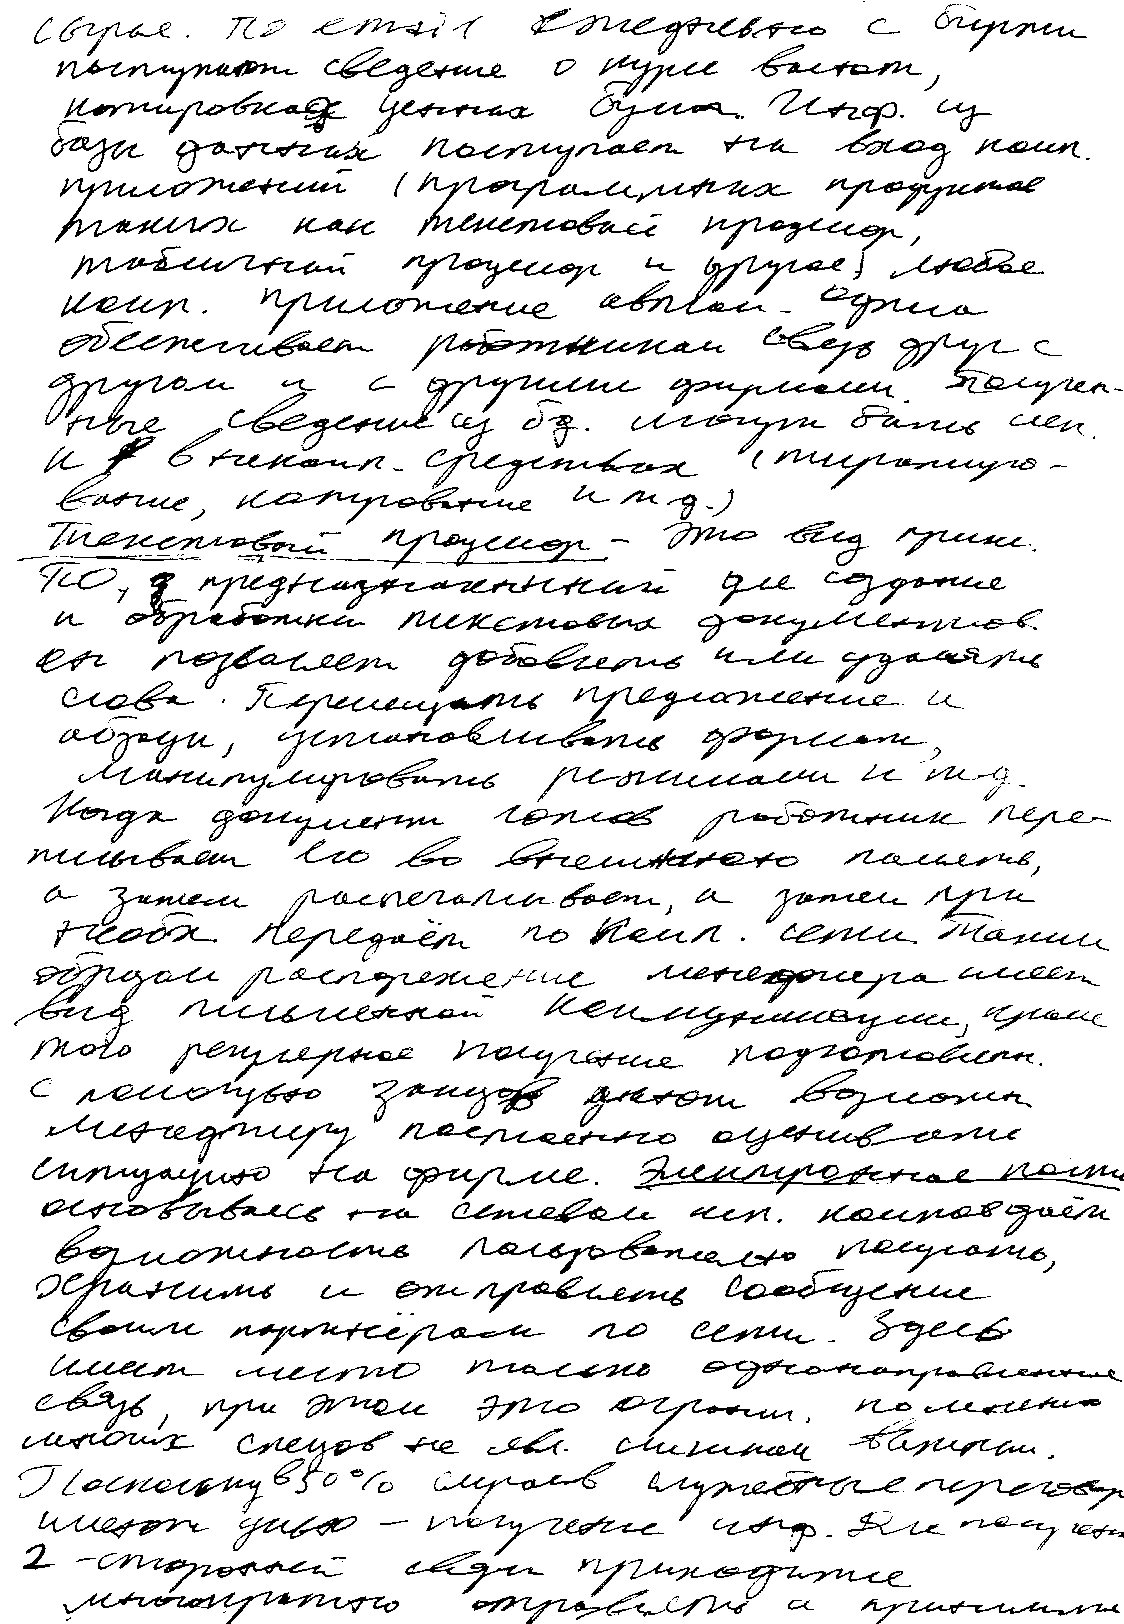 сырье. По email ежедневно с биржи
поступают сведение о курсе валют,
котировках ценных бумаг. Инф. из
базы данных поступает на вход комп.
приложений (программных продуктов
таких как текстовый процессор,
табличный процессор и другое) любое
комп. приложение автом. офиса
обеспечивает работникам связь друг с
другом и с другими фирмами. Получен-
ные сведение из бд. могут быть исп.
и в некомп. средствах (тиражиро-
вание, копирование и т д.)
Текстовый процессор - это вид прикл.
ПО, предназначенный для создание
и обработки текстовых документов.
он позволяет добавлять или удалять
слова. Перемещать предложение и
абзацы, устанавливать формат,
манипулировать режимами и т д.
Когда документ готов работник пере-
писывает его во внешнюю память,
а затем распечатывает, а затем при
необх. передаёт по комп. сети. Таким
образом распоряжение менеджера имеет
вид письменной коммуникации, кроме
того регулярное получение подготовлен.
с помощью дают возможн
менеджеру постоянно оценивать
ситуацию на фирме. Электронное почта
основываясь на сетевом исп. компов даёт
возможность пользователю получать,
хранить и отправлять сообщение
своим партнёрам по сети. Здесь
имеет место только однонаправленные
связь, при этом это огранич. по мнению
многих спецов не явл. слишком важным.
Поскольку в 50% случаев служебные переговор
имеют целью - получение инф. Для получен
2 -сторонней связи приходится
многократно отправлять и принимать